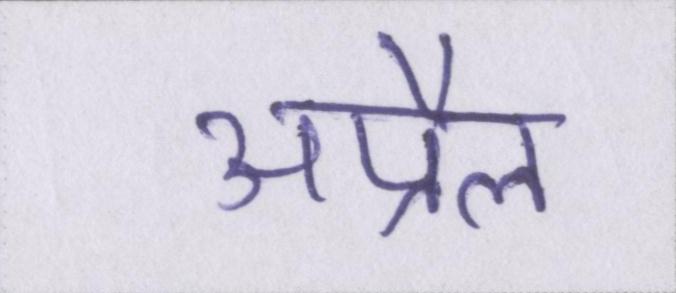 अप्रैल